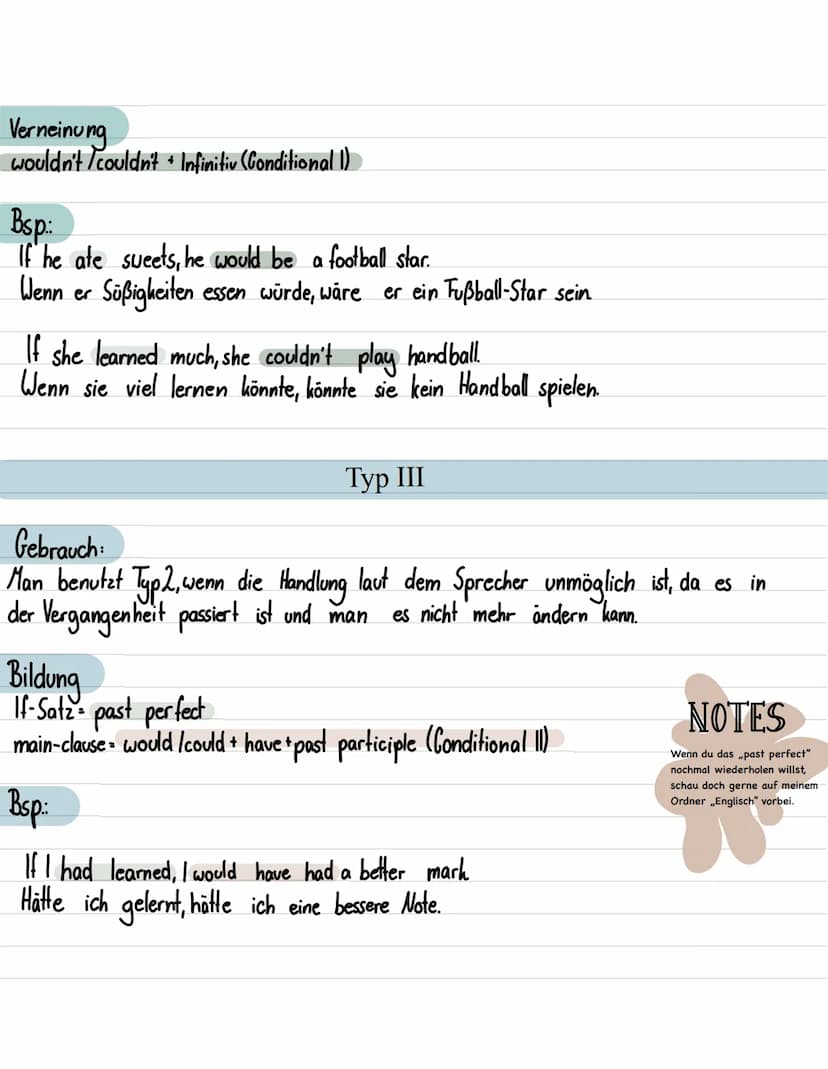 Verneinung
wouldn't/couldn't + Infinitiv (Conditional I)
Bsp.:
If he ate sweets, he would be a football star.
Wenn er Süßigkeiten essen würde, wäre er ein Fußball-Star sein
If she learned much, she couldn't play handball.
Wenn sie viel lernen könnte, könnte sie kein Handball spielen.
Typ III
Gebrauch:
Man benutzt Typ 2, wenn die Handlung laut dem Sprecher unmöglich ist, da es in
der Vergangenheit passiert ist und man es nicht mehr ändern kann.
Bildung
If-Satz= past perfect
main-clause= would/could + have + past participle (Conditional II)
NOTES
Wenn du das „past perfect"
nochmal wiederholen willst,
schau doch gerne auf meinem
Ordner „Englisch" vorbei.
Bsp.:
If I had learned, I would have had a better mark
Hätte ich gelernt, hätte ich eine bessere Note.